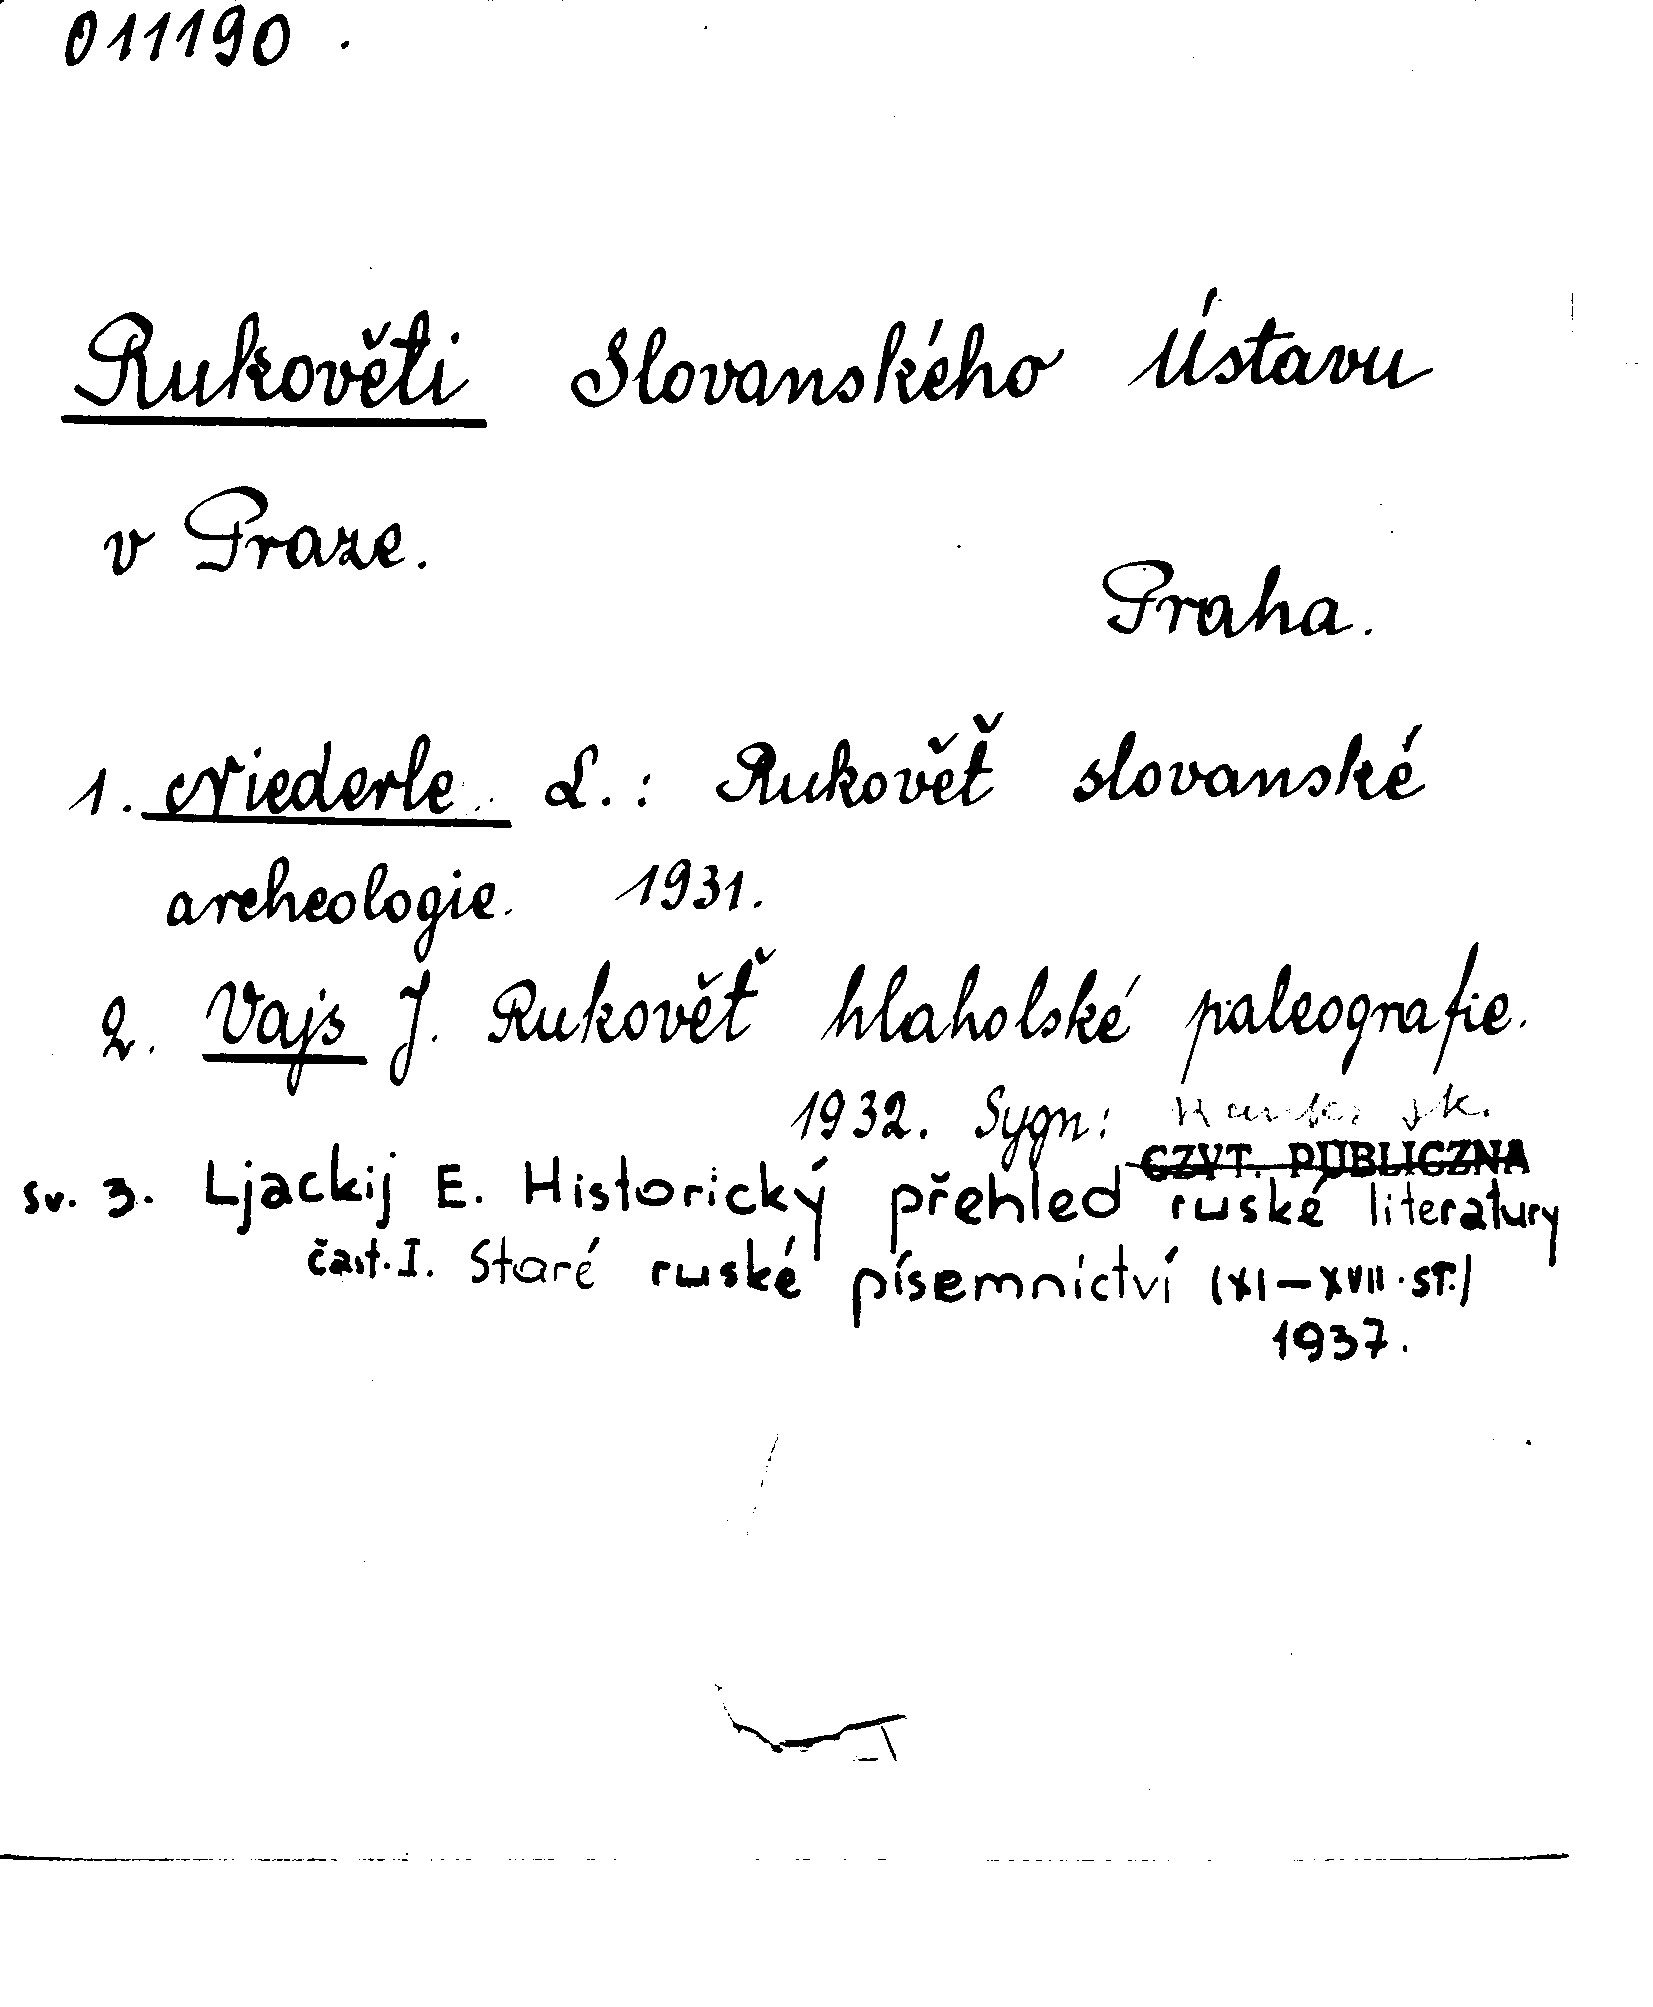 011190
Rukověti Slovanského Ústavu
v Praze.
Praha.
1. Niederle L.: Rukověť slovanské
archeologie. 1931.
2. Vajs J. Rukověť hlaholské paleografie.
1932. Sygn:
CZYT. PUBLICZNA
sv. 3. Ljackij E. Historický přehled ruské literatury
část. I. Staré ruské písemnictví (XI-XVII. ST.)
1937.